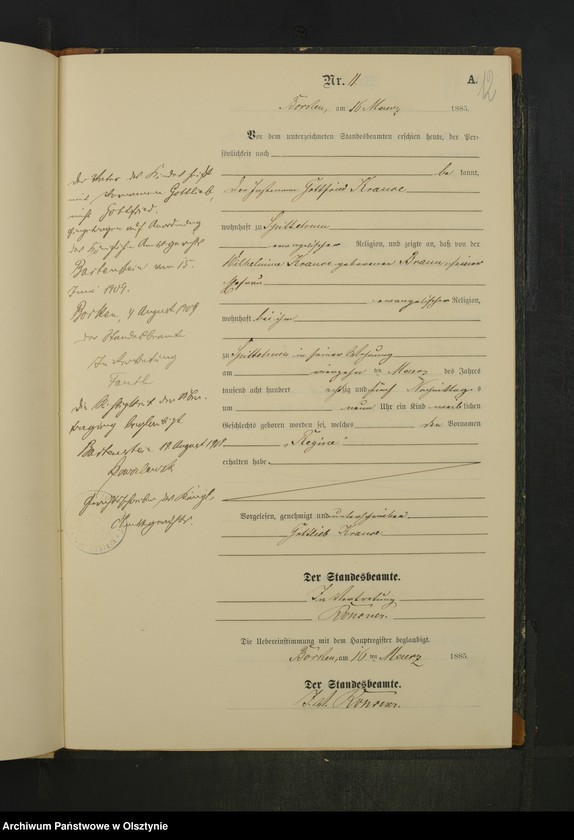 Nr. 11.
A.
12
Borken, am 16 Maerz 1885.
Vor dem unterzeichneten Standesbeamten erschien heute, der Per-
sönlichkeit nach
be kannt,
der Gottfried Krause
wohnhaft zu Spittehnen
evangelischer Religion, und zeigte an, daß von der
Wilhelmine Krause geborenen Braun, seiner
Ehefrau
evangelischer Religion,
wohnhaft bei ihm
zu Spittehnen in seiner Wohnung
am vierzehn ten Maerz des Jahres
tausend acht hundert achtzig und fünf Nachmittags
um neun Uhr ein Kind weiblichen
Geschlechts geboren worden sei, welches den Vornamen
„Regine“
erhalten habe.
Vorgelesen, genehmigt und unterschrieben
Gottlieb Krause
Der Standesbeamte.
In Vertretung
Die Uebereinstimmung mit dem Hauptregister beglaubigt.
Borken, am 16 ten Maerz 1885.
Der Standesbeamte.
Der Vater des Kindes heißt
mit Vornamen Gottlieb,
nicht Gottfried.
Eingetragen auf Anordnung
des Königlichen Amtsgerichts
Bartenstein vom 15.
Juni 1909.
Borken, 4 August 1909
Der Standesbeamte
In Vertretung
Die Richtigkeit der Ein-
tragung beglaubigt
Bartenstein August
Gerichtsschreiber des Königl.
Amtsgerichts.
Archiwum Państwowe w Olsztynie